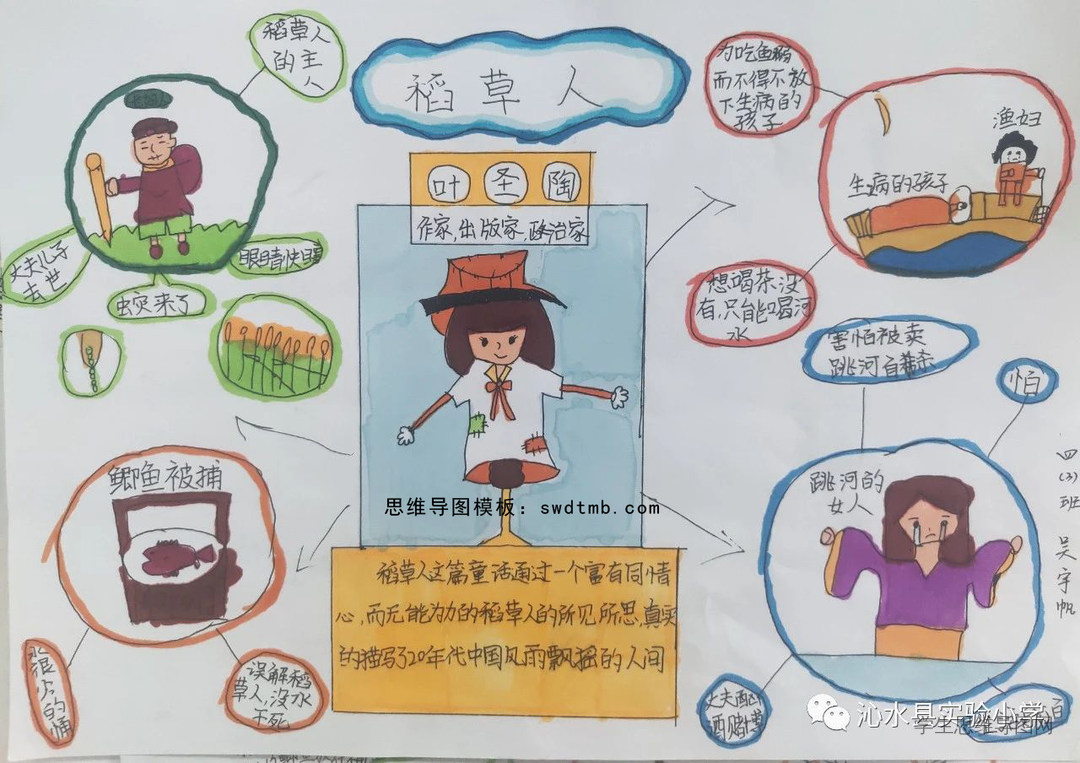 稻草人
叶圣陶
作家,出版家,政治家
稻草人
的主
人
丈夫儿子
去世
虫灾来了
为吃鱼粥
而不得不放
下生病的
孩子
渔妇
生病的孩子
想喝茶没
有,只能喝河
水
害怕被卖
跳河自
怕
跳河的
女人
丈夫
酒赌
鲫鱼被捕
很少的桶
误解稻
草人,没水
干死
稻草人这篇童话通过一个富有同情
心,而无能为力的稻草人的所见所思,真实
的描写了20年代中国风雨飘摇的人间
思维导图模板：swdtmb.com
四(3)班 吴宇帆
沁水县实验小学
学生思维导图网